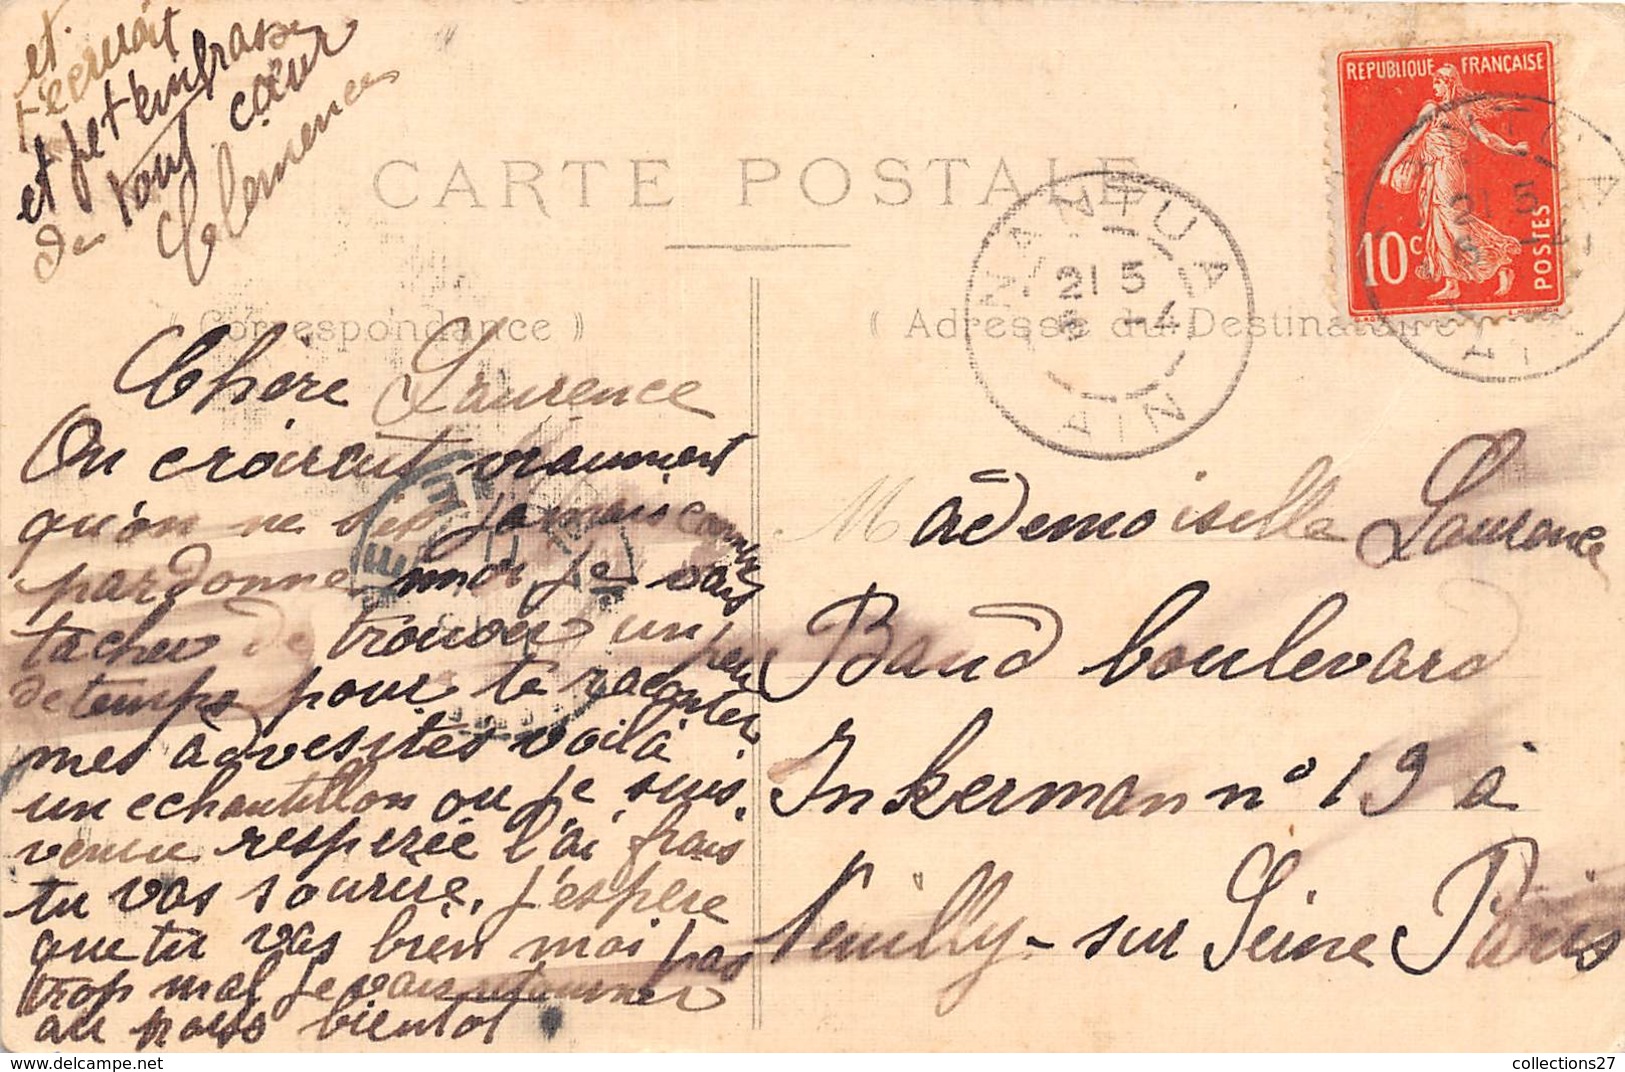 et
t'ecrirait
et je t'embrasse
de tout cœur
Clemence
CARTE POSTALE
REPUBLIQUE FRANÇAISE
10c
POSTES
NANTUA
21 5
6 -4
AIN
21 5
6 -4
( Correspondance )
( Adresse du Destinataire )
Chere Laurence
On croirait vraiment
qu'on ne jamais
pardonne moi je vais
tacher de trouver un peu
de temps pour te raconter
mes àdvesites voilà
un echantillon ou je suis
venue respirée l'ai frais
tu vas sourire. j'espere
que tu vas bien moi pas
trop mal je vais retourner
au pays bientot
Mademoiselle Laurence
Baud boulevard
Inkerman n° 19 à
Neuilly-sur Seine Paris
collections27